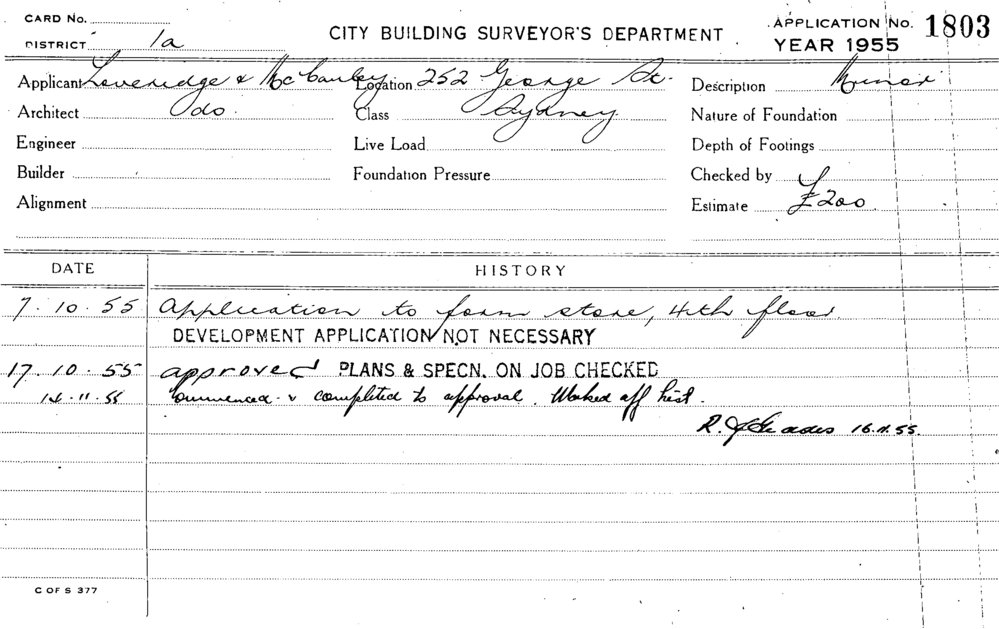 CARD No.
DISTRICT 1a
CITY BUILDING SURVEYOR'S DEPARTMENT
APPLICATION No. 1803
YEAR 1955
Applicant Leveridge & McCauley Location 252 George St. Description Minor
Architect do. Class Sydney Nature of Foundation
Engineer Live Load Depth of Footings
Builder Foundation Pressure Checked by
Alignment Estimate £200
DATE HISTORY
7.10.55 Application to form store, 4th floor
DEVELOPMENT APPLICATION NOT NECESSARY
17.10.55 approved PLANS & SPECN. ON JOB CHECKED
14.11.55 Commenced & completed to approval. Worked off list.
R. 16.11.55.
C OF S 377